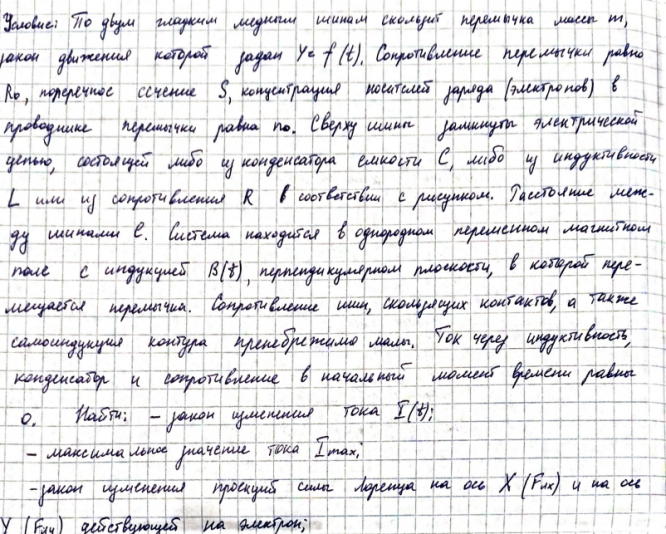 Условие: По двум гладким медным шинам скользит перемычка массы m,
закон движения которой задан Y= f(t). Сопротивление перемычки равно
R₀, поперечное сечение S, концентрация носителей заряда (электронов) в
проводнике перемычки равна n₀. Сверху шины замкнуты электрической
цепью, состоящей либо из конденсатора емкости C, либо из индуктивности
L или из сопротивления R в соответствии с рисунком. Расстояние меж-
ду шинами l. Система находится в однородном переменном магнитном
поле с индукцией B(t), перпендикулярном плоскости, в которой пере-
мещается перемычка. Сопротивление шин, скользящих контактов, а также
самоиндукция контура пренебрежимо малы. Ток через индуктивность,
конденсатор и сопротивление в начальный момент времени равны
0. Найти: - закон изменения тока I(t);
- максимальное значение тока Imax;
- закон изменения проекций силы Лоренца на ось X (Fлx) и на ось
Y (Fлy) действующей на электрон;